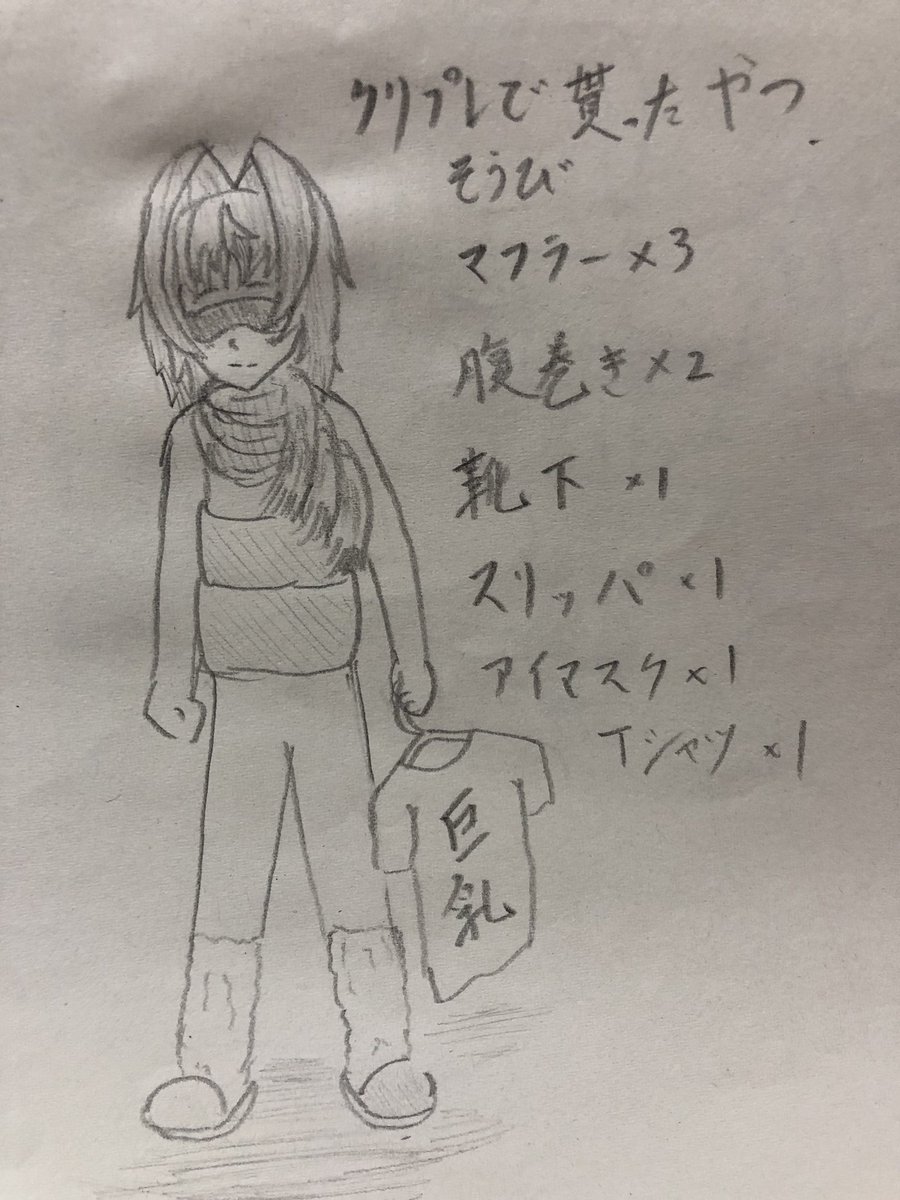 クリプレで貰ったやつ.
そうび
マフラー×3
腹巻き×2
靴下 ×1
スリッパ×1
アイマスク×1
Tシャツ ×1
巨
乳